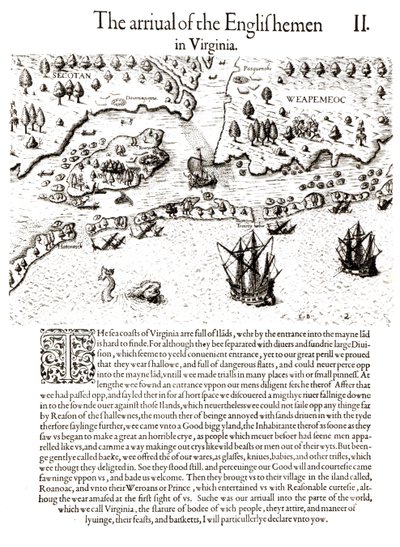 The arriual of the Engliſhemen II.
in Virginia.
SECOTAN
Pasquenoke
WEAPEMEOC
Dasamonquepeuc
Trinety harbor
Hatorasck
THe ſea coaſts of Virginia arre full of Ilãds, wehr by the entrance into the mayne lãd
is hard to finde. For although they bee ſeparated with diuers and ſundrie large Diui-
ſion, which ſeeme to yeeld conuenient entrance, yet to our great perill we proued
that they wear ſhallowe, and full of dangerous flatts, and could neuer perce opp
into the mayne lãd, vntill wee made trialls in many places with or ſmall pinneſſ. At
lengthe wee fownd an entrance vppon our mens diligent ſerche therof Affter that
wee had paſſed opp, and ſayled ther in for aſ hort ſpace we diſcouered a migthye riuer fallnige downe
in to the ſownde ouer againſt thoſe Ilands, which neuertheleſs wee could not ſaile opp any thinge far
by Reaſon of the ſhallewnes, the mouth ther of beinge annoyed with ſands driuen in with the tyde
therfore ſaylinge further, wee came vnto a Good bigg yland, the Inhabitante therof as ſoone as they
ſaw vs began to make a great an horrible crye, as people which meuer befoer had ſeene men appa-
relled like vs, and camme a way makinge out crys like wild beaſts or men out of their wyts. But been-
ge gentlye called backe, wee offred thẽ of our wares, as glaſſes, kniues, babies, and other trifles, which
wee thougt they deligted in. Soe they ſtood ſtill, and perceuinge our Good will and courteſie came
fawninge vppon vs, and bade us welcome. Then they brougt vs to their village in the iland called,
Roanoac, and vnto their Weroans or Prince, which entertained vs with Reaſonable curteſie, alt-
houg the wear amaſed at the firſt ſight of vs. Suche was our arriuall into the parte of the world,
which we call Virginia, the ſtature of bodee of wich people, theyr attire, and maneer of
lyuinge, their feaſts, and banketts, I will particullerlye declare vnto yow.